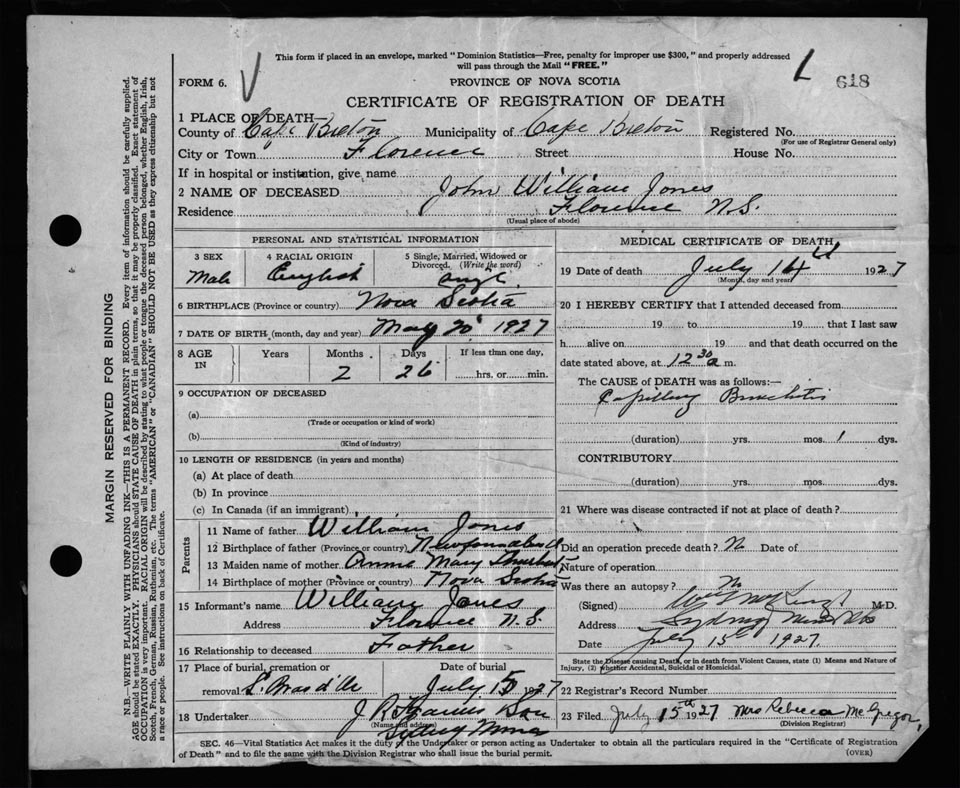 This form if placed in an envelope, marked "Dominion Statistics—Free, penalty for improper use $300," and properly addressed
will pass through the Mail "FREE."
618
FORM 6.
PROVINCE OF NOVA SCOTIA
CERTIFICATE OF REGISTRATION OF DEATH
1 PLACE OF DEATH—
County of Cape Breton Municipality of Cape Breton Registered No.
(For use of Registrar General only)
City or Town Florence Street House No.
If in hospital or institution, give name
2 NAME OF DECEASED John William Jones
Residence Florence N.S.
(Usual place of abode)
PERSONAL AND STATISTICAL INFORMATION
3 SEX 4 RACIAL ORIGIN 5 Single, Married, Widowed or
Divorced. (Write the word)
Male English Single
6 BIRTHPLACE (Province or country) Nova Scotia
7 DATE OF BIRTH (month, day and year) May 20 1927
8 AGE IN Years Months Days If less than one day,
2 26 hrs. or min.
9 OCCUPATION OF DECEASED
(a)
(Trade or occupation or kind of work)
(b)
(Kind of industry)
10 LENGTH OF RESIDENCE (in years and months)
(a) At place of death
(b) In province
(c) In Canada (if an immigrant)
Parents
11 Name of father William Jones
12 Birthplace of father (Province or country) Newfoundland
13 Maiden name of mother Annie Mary
14 Birthplace of mother (Province or country) Nova Scotia
15 Informant's name William Jones
Address Florence N.S.
16 Relationship to deceased Father
17 Place of burial, cremation or Date of burial
removal L. Bras d'Or July 15 1927
18 Undertaker J R & Son
(Name and address)
Sydney Mines
MEDICAL CERTIFICATE OF DEATH
19 Date of death July 14 1927
(Month, day and year)
20 I HEREBY CERTIFY that I attended deceased from
19 to 19 that I last saw
h alive on 19 and that death occurred on the
date stated above, at 12 30 a m.
The CAUSE of DEATH was as follows:—
Capillary Bronchitis
(duration) yrs. mos. 1 dys.
CONTRIBUTORY
(duration) yrs. mos. dys.
21 Where was disease contracted if not at place of death?
Did an operation precede death? N Date of
Nature of operation
Was there an autopsy? N
(Signed) M.D.
Address Sydney Mines NS
Date July 15th 1927.
State the Disease causing Death, or in death from Violent Causes, state (1) Means and Nature of
Injury, (2) whether Accidental, Suicidal or Homicidal.
22 Registrar's Record Number
23 Filed July 15th 1927 Mrs Rebecca McGregor,
(Division Registrar)
SEC. 46—Vital Statistics Act makes it the duty of the Undertaker or person acting as Undertaker to obtain all the particulars required in the "Certificate of Registration
of Death" and to file the same with the Division Registrar who shall issue the burial permit.
(OVER)
MARGIN RESERVED FOR BINDING
N.B.—WRITE PLAINLY WITH UNFADING INK—THIS IS A PERMANENT RECORD. Every item of information should be carefully supplied.
AGE should be stated EXACTLY. PHYSICIANS should STATE CAUSE OF DEATH in plain terms, so that it may be properly classified. Exact statement of
OCCUPATION is very important. RACIAL ORIGIN will be described by stating to what people or tongue the deceased person belonged, whether English, Irish,
Scotch, French, German, Russian, Ruthenian, etc. The terms "AMERICAN" or "CANADIAN" SHOULD NOT BE USED as they express citizenship but not
a race or people. See instructions on back of Certificate.